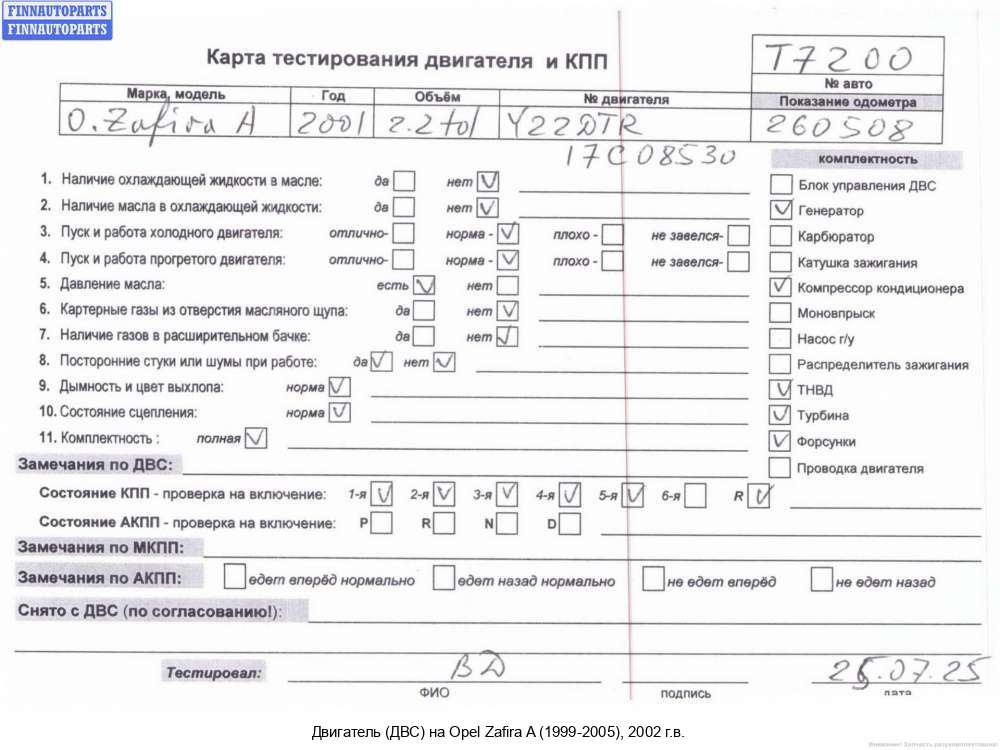 FINNAUTOPARTS
FINNAUTOPARTS
Карта тестирования двигателя и КПП
T7200
№ авто
Марка, модель Год Объём № двигателя Показание одометра
O. Zafira A 2001 2.2tdl Y22DTR 260508
17C08530
комплектность
1. Наличие охлаждающей жидкости в масле: да нет
Блок управления ДВС
2. Наличие масла в охлаждающей жидкости: да нет
Генератор
3. Пуск и работа холодного двигателя: отлично- норма - плохо - не завелся-
Карбюратор
4. Пуск и работа прогретого двигателя: отлично- норма - плохо - не завелся-
Катушка зажигания
5. Давление масла: есть нет
Компрессор кондиционера
6. Картерные газы из отверстия масляного щупа: да нет
Моновпрыск
7. Наличие газов в расширительном бачке: да нет
Насос г/у
8. Посторонние стуки или шумы при работе: да нет
Распределитель зажигания
9. Дымность и цвет выхлопа: норма
ТНВД
10. Состояние сцепления: норма
Турбина
11. Комплектность : полная
Форсунки
Замечания по ДВС:
Проводка двигателя
Состояние КПП - проверка на включение: 1-я 2-я 3-я 4-я 5-я 6-я R
Состояние АКПП - проверка на включение: P R N D
Замечания по МКПП:
Замечания по АКПП: едет вперёд нормально едет назад нормально не едет вперёд не едет назад
Снято с ДВС (по согласованию!):
Тестировал: ВД 25.07.25
ФИО подпись дата
Двигатель (ДВС) на Opel Zafira A (1999-2005), 2002 г.в.